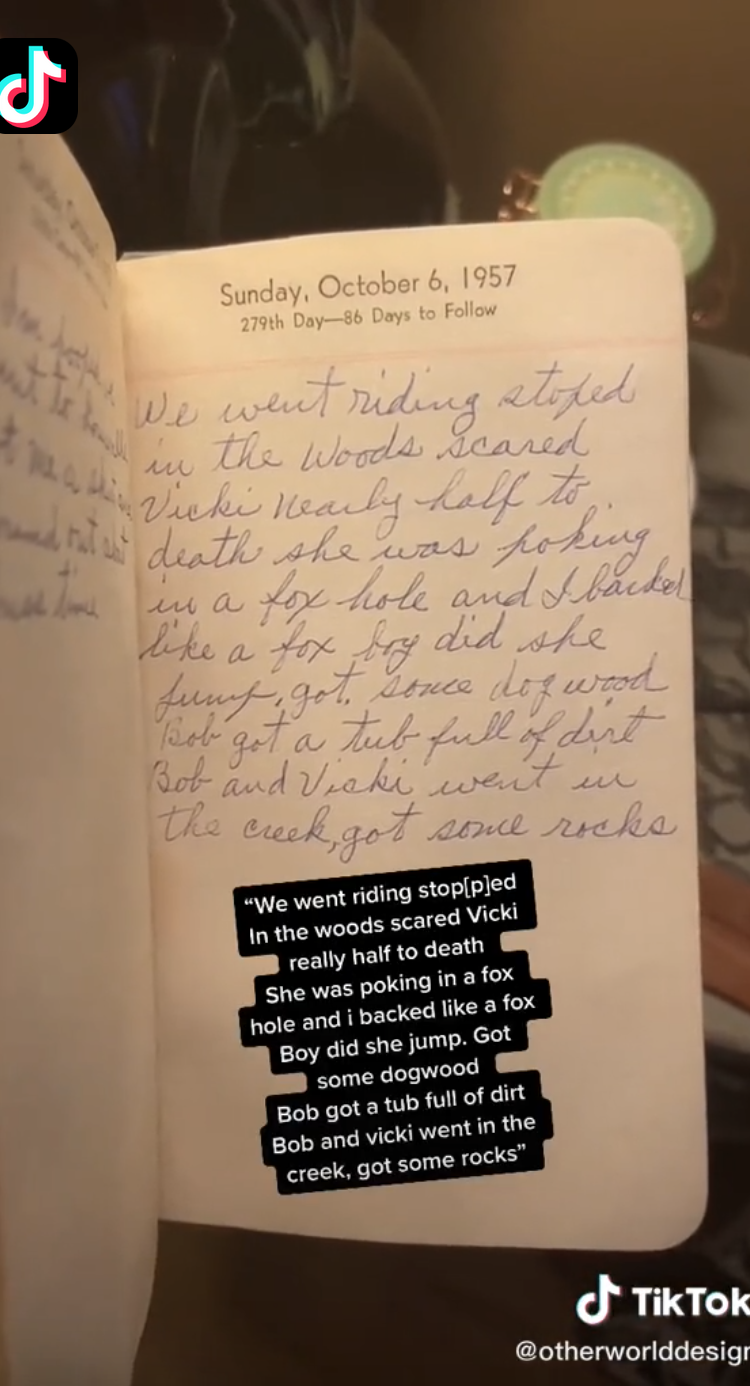 Sunday, October 6, 1957
279th Day—86 Days to Follow
We went riding stoped
in the Woods scared
Vicki nearly half to
death she was poking
in a fox hole and I barked
like a fox boy did she
jump, got. some dog wood
Bob got a tub full of dirt
Bob and Vicki went in
the creek, got some rocks
“We went riding stop[p]ed
In the woods scared Vicki
really half to death
She was poking in a fox
hole and i backed like a fox
Boy did she jump. Got
some dogwood
Bob got a tub full of dirt
Bob and vicki went in the
creek, got some rocks”
TikTok
@otherworlddesign